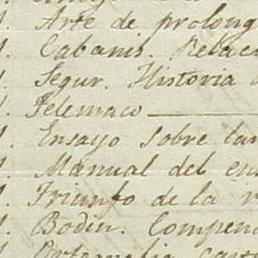 Arte de prolong
Cabanis. Relac
Segur. Historia
Telemaco
Ensayo sobre la
Manual del en
Triunfo de la
Bodin. Compen